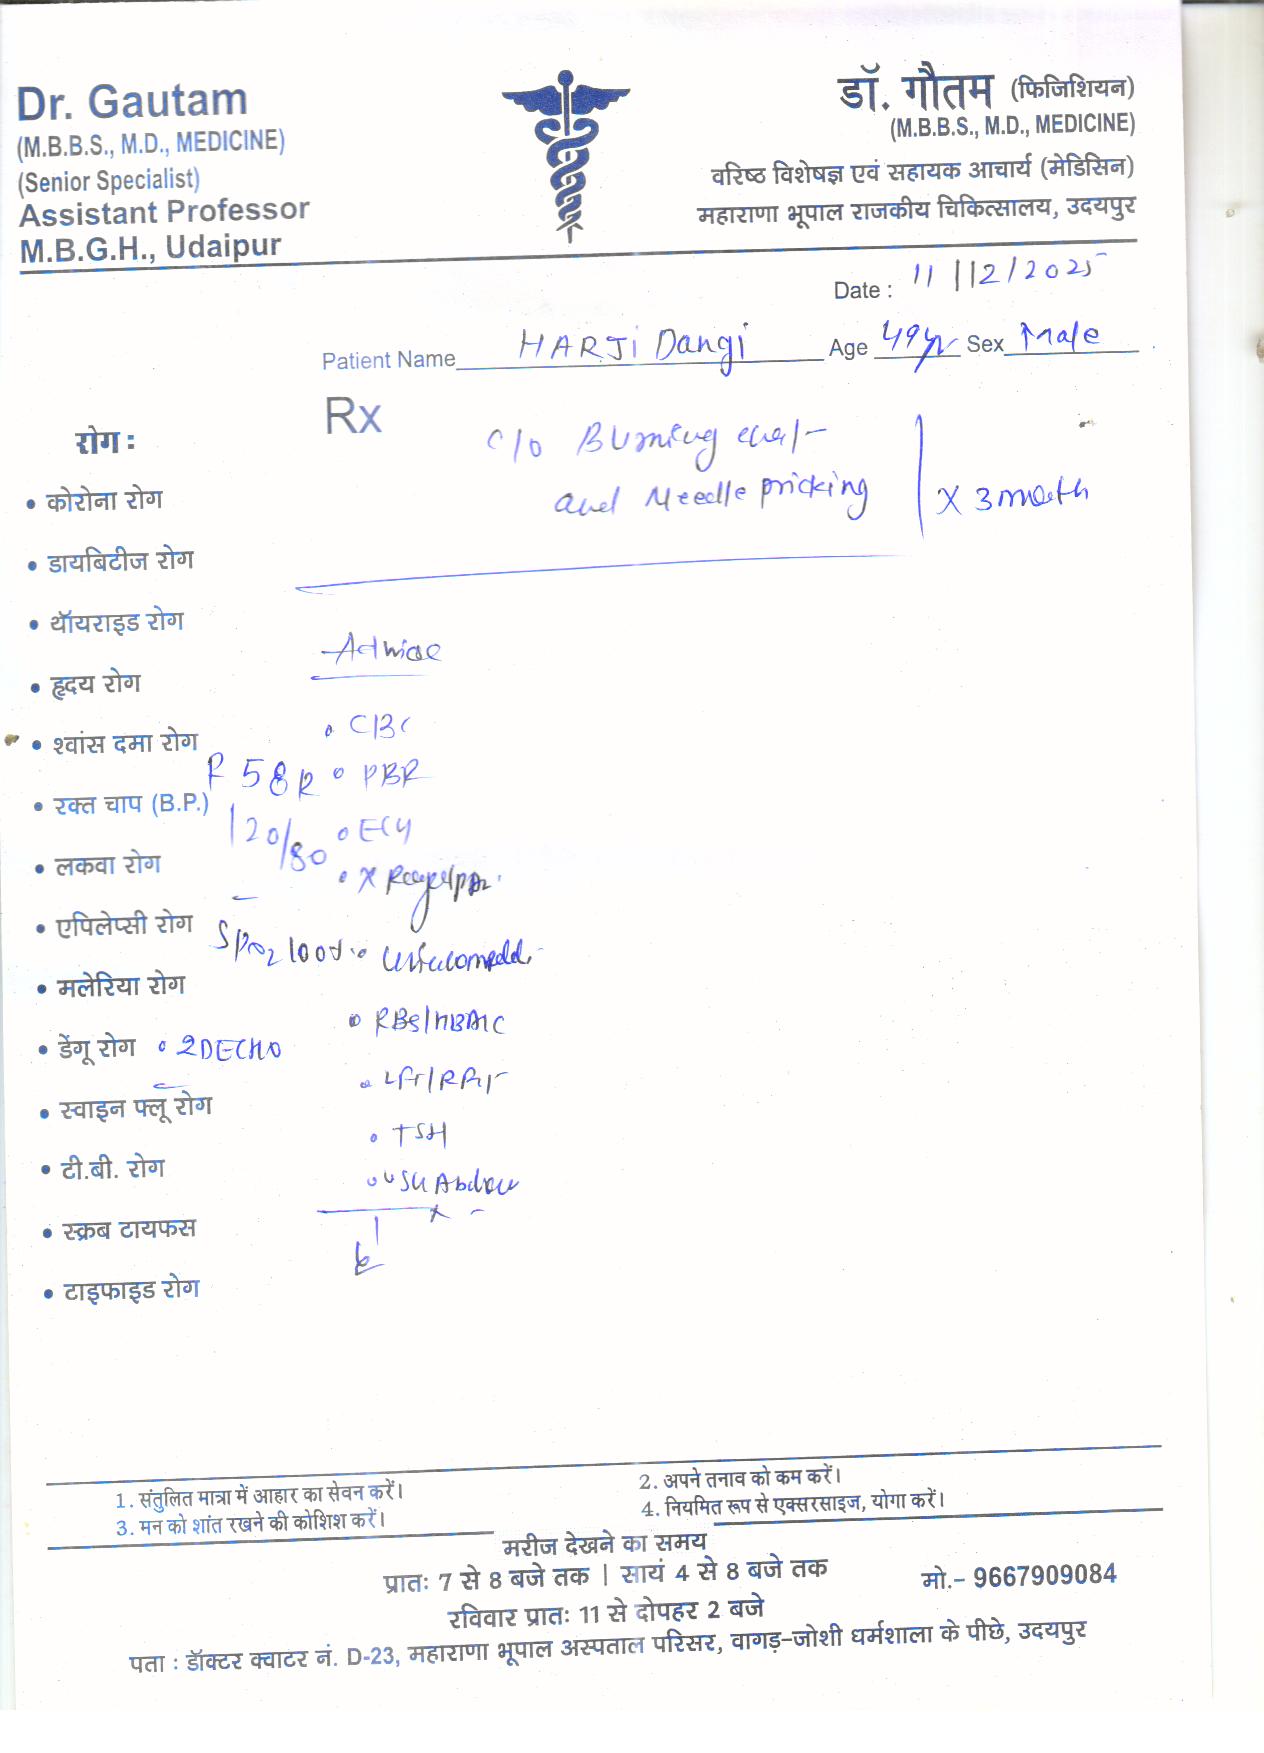 Dr. Gautam
(M.B.B.S., M.D., MEDICINE)
(Senior Specialist)
Assistant Professor
M.B.G.H., Udaipur
डॉ. गौतम (फिजिशियन)
(M.B.B.S., M.D., MEDICINE)
वरिष्ठ विशेषज्ञ एवं सहायक आचार्य (मेडिसिन)
महाराणा भूपाल राजकीय चिकित्सालय, उदयपुर
Date : 11/12/2025
Patient Name HARJi Dangi Age 49yr Sex Male
Rx
C/o Burning
and Needle pricking
X 3 month
रोग :
• कोरोना रोग
• डायबिटीज रोग
• थॉयराइड रोग
• हृदय रोग
• श्वांस दमा रोग
• रक्त चाप (B.P.)
• लकवा रोग
• एपिलेप्सी रोग
• मलेरिया रोग
• डेंगू रोग
• स्वाइन फ्लू रोग
• टी.बी. रोग
• स्क्रब टायफस
• टाइफाइड रोग
58
120/80
SpO2 100
• 2DECHO
Advice
• CBC
• PBF
• ECG
• X Ray
• RBS/HBA1C
• LFT/RFT
• TSH
• USG Abdomen
1. संतुलित मात्रा में आहार का सेवन करें।
2. अपने तनाव को कम करें।
3. मन को शांत रखने की कोशिश करें।
4. नियमित रूप से एक्सरसाइज, योगा करें।
मरीज देखने का समय
प्रातः 7 से 8 बजे तक | सायं 4 से 8 बजे तक
मो.– 9667909084
रविवार प्रातः 11 से दोपहर 2 बजे
पता : डॉक्टर क्वाटर नं. D-23, महाराणा भूपाल अस्पताल परिसर, वागड़–जोशी धर्मशाला के पीछे, उदयपुर